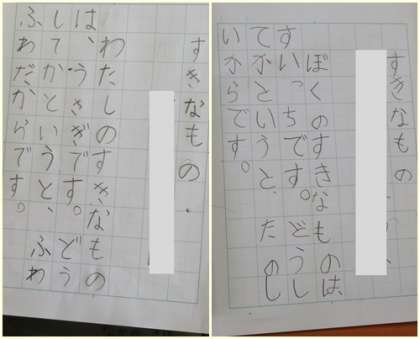 すきなもの
わたしのすきなもの
は、うさぎです。どう
してかというと、ふわ
ふわだからです。
すきなもの
ぼくのすきなものは、
すいっちです。どうし
てかというと、たのし
いからです。